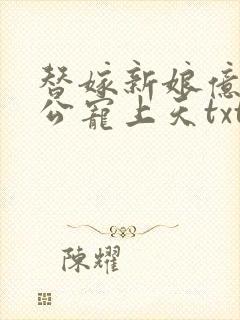 替嫁新娘億
公寵上天txt
陳耀